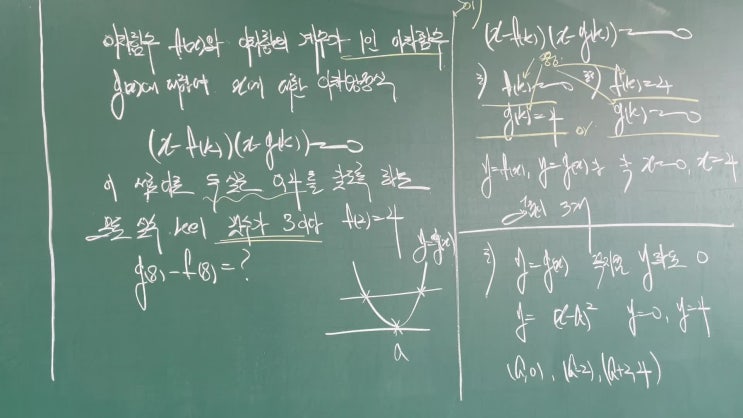 이차함수 f(x)와 이차항의 계수가 1인 이차함수
g(x)에 대하여 x에 대한 이차방정식
(x-f(k))(x-g(k))=0
이 서로 다른 두 실근 0, 4를 근으로 하는
모든 실수 k의 개수가 3이다 f(2)=4
g(8)-f(8)=?
y=g(x)
a
(x-f(k))(x-g(k))=0
f(k)=0 f(k)=4
g(k)=4 g(k)=0
y=f(x), y=g(x) x=0, x=4
3개
y=g(x) 꼭지점 y좌표 0
y=(x-a)² y=0, y=4
(a,0), (a-2), (a+2,4)